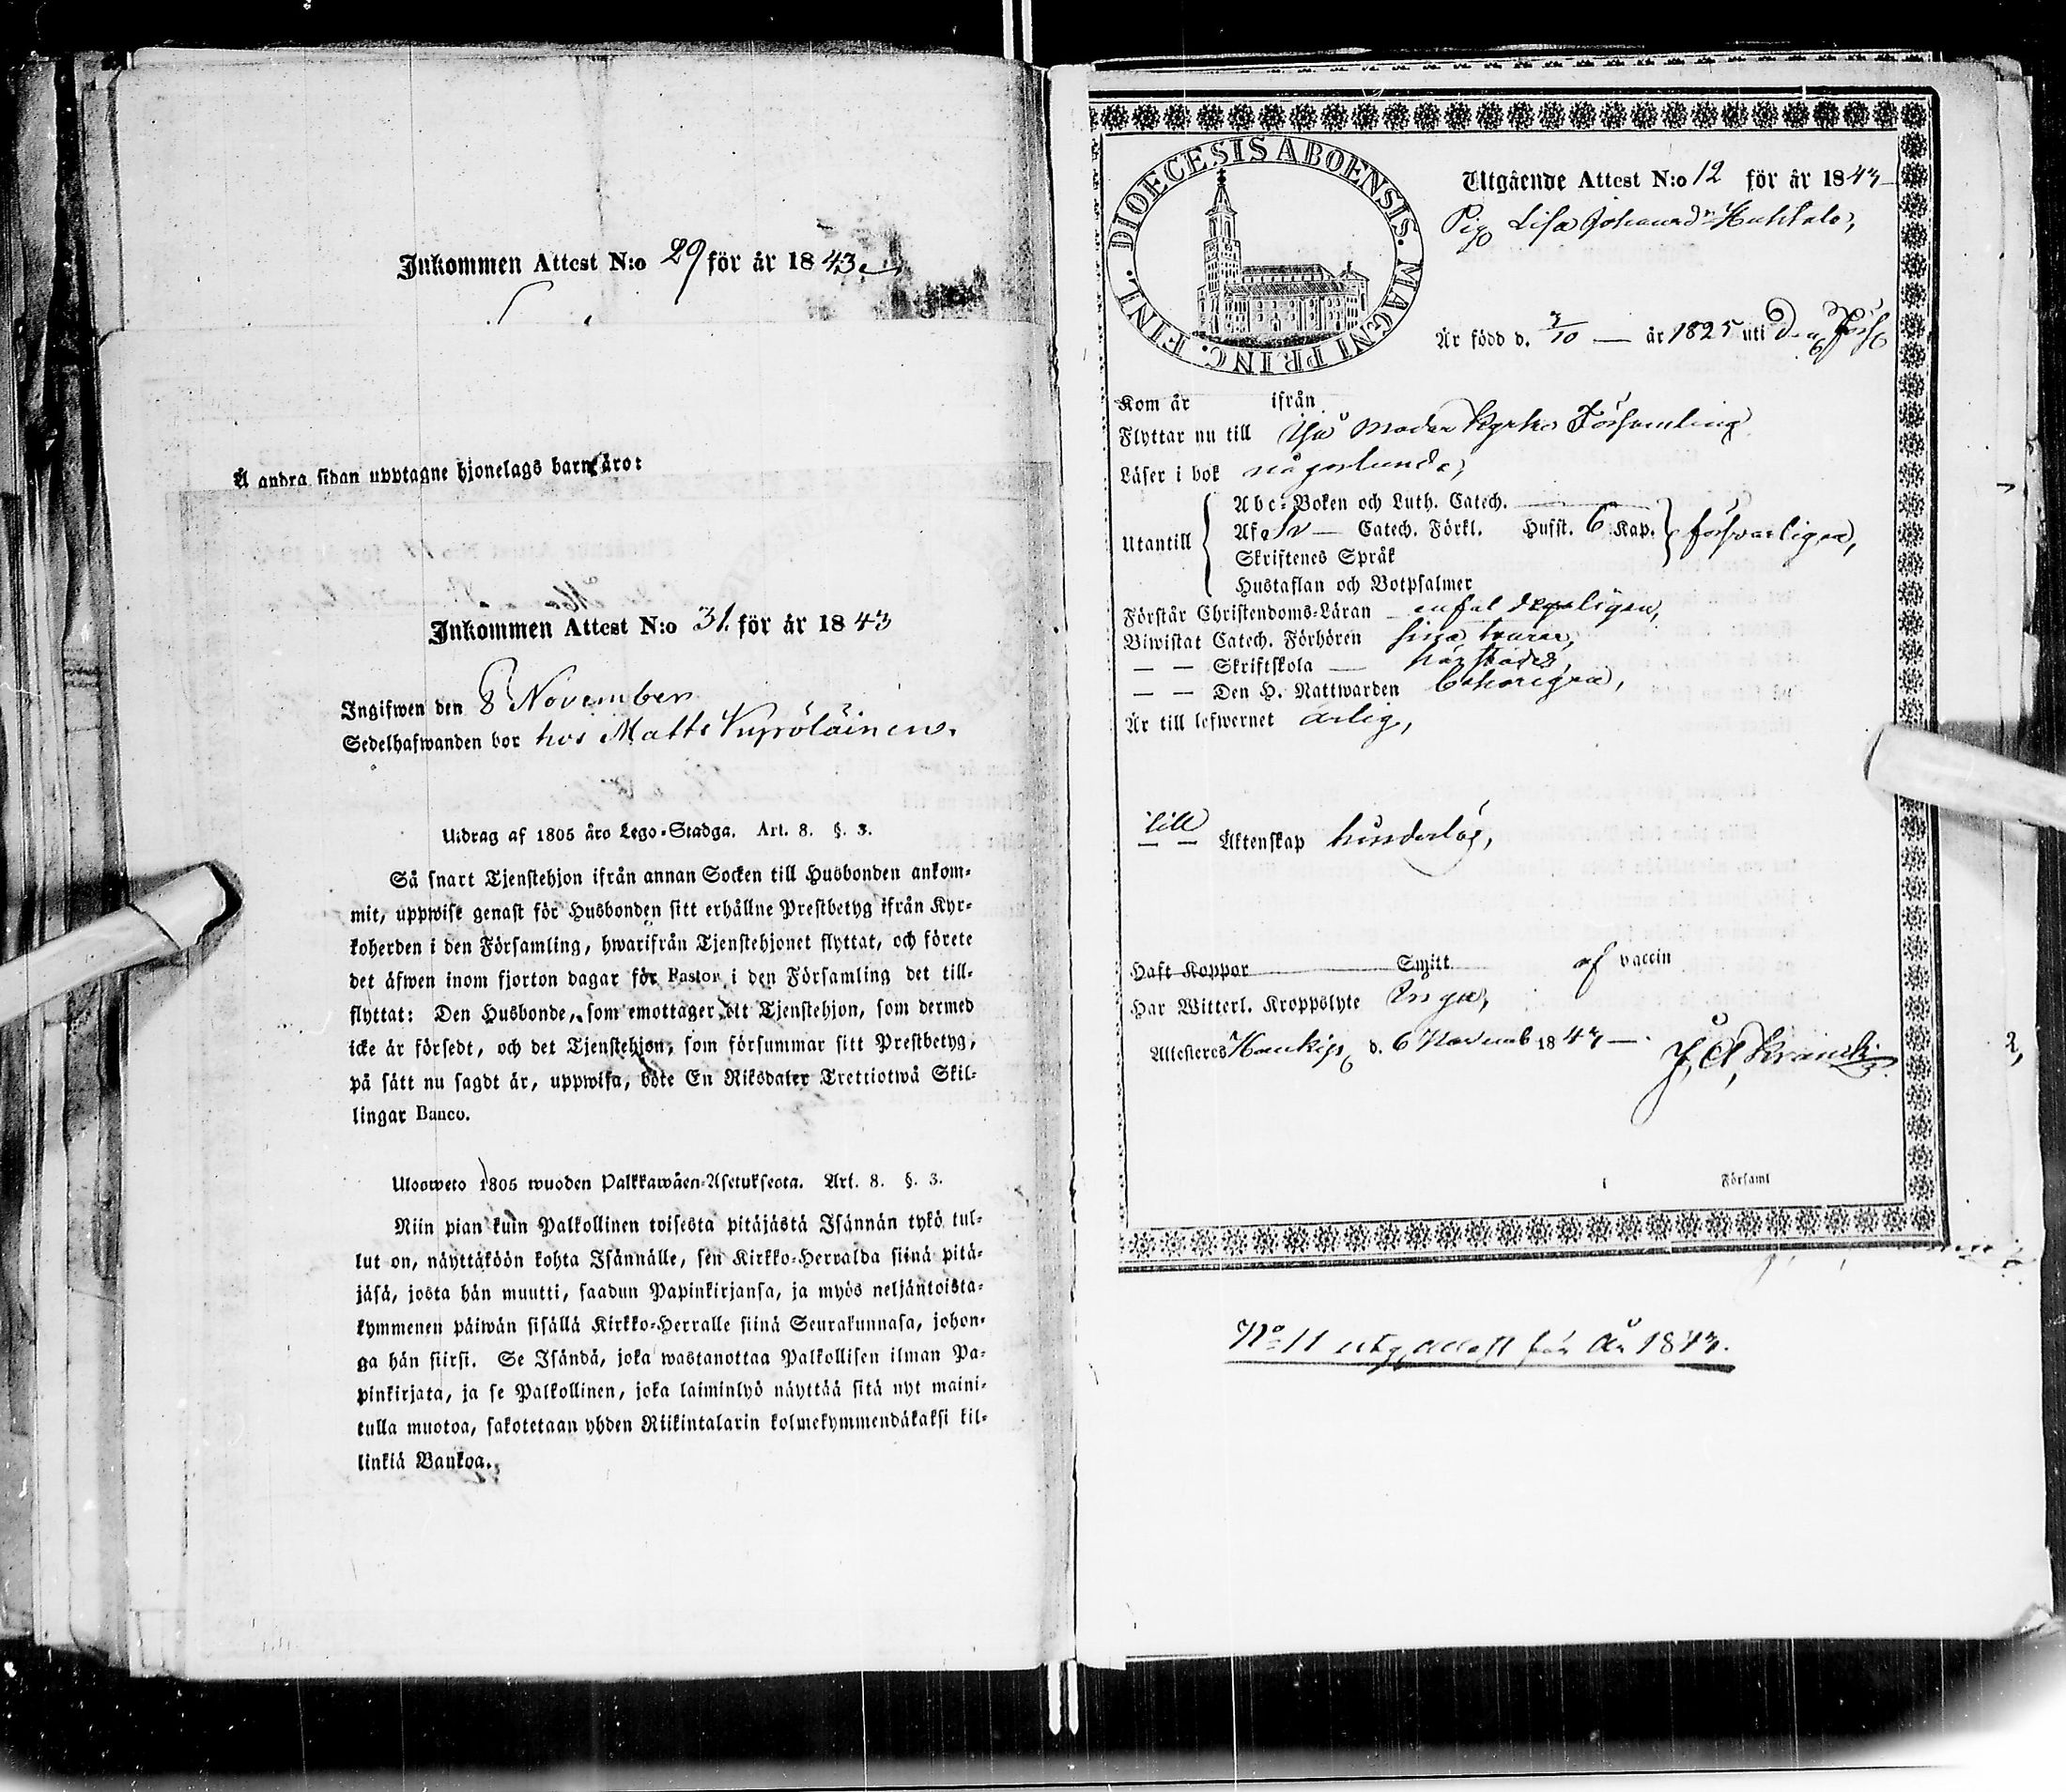 Inkommen Attest N:o 29 för år 1843
Å andra sidan upptagne hjonelags barn äro:
Inkommen Attest N:o 31. för år 1843
Ingifwen den 8 November
Sedelhafwanden bor hos Matts Kyröläinen.
Utdrag af 1805 års Lego-Stadga. Art. 8. §. 3.
Så snart Tjenstehjon ifrån annan Socken till Husbonden ankom-
mit, uppwise genast för Husbonden sitt erhållne Prestbetyg ifrån Kyr-
koherden i den Församling, hwarifrån Tjenstehjonet flyttat, och förete
det äfwen inom fjorton dagar för Pastor i den Församling det till-
flyttat: Den Husbonde, som emottager ett Tjenstehjon, som dermed
icke är försedt, och det Tjenstehjon, som försummar sitt Prestbetyg,
på sätt nu sagdt är, uppwisa, böte En Riksdaler Trettiotwå Skil-
lingar Banco.
Ulosweto 1805 wuoden Palkkawäen-Asetuksesta. Art. 8. §. 3.
Niin pian kuin Palkollinen toisesta pitäjästä Isännän tykö tul-
lut on, näyttäköön kohta Isännälle, sen Kirkko-Herralda siinä pitä-
jäsä, josta hän muutti, saadun Papinkirjansa, ja myös neljäntoista-
kymmenen päiwän sisällä Kirkko-Herralle siinä Seurakunnasa, johon-
ga hän siirsi. Se Isändä, joka wastanottaa Palkollisen ilman Pa-
pinkirjata, ja se Palkollinen, joka laiminlyö näyttää sitä nyt maini-
tulla muotoa, sakotetaan yhden Riikintalarin kolmekymmendäkaksi kil-
linkiä Bankoa.
DIOECESIS ABOENSIS. MAGNI PRINC. FINL.
Utgående Attest N:o 12 för år 1843
Pig Lisa Johansdr Huhtala,
Är född d. 3/10 — år 1825 uti
Kom år ifrån
Flyttar nu till Moder Kyrko Församling
Läser i bok någorlunda,
Utantill
Abc-Boken och Luth. Catech.
Af Catech. Förkl. Hufst. 6 Kap. försvarligen,
Skriftenes Språk
Hustaflan och Botpsalmer
Förstår Christendoms-Läran enfaldeligen,
Biwistat Catech. Förhören sina turer,
— — Skriftskola — härstädes,
— — Den H. Nattwarden behörigen,
Är till lefwernet ärlig,
till
— — Äktenskap hinderlös,
Haft Koppor Smitt af vaccin
Har Witterl. Kroppslyte Inga,
Attesteres d. 6 Novemb 1843 —
Församl
2,
No 11 utg. attest för År 1843.